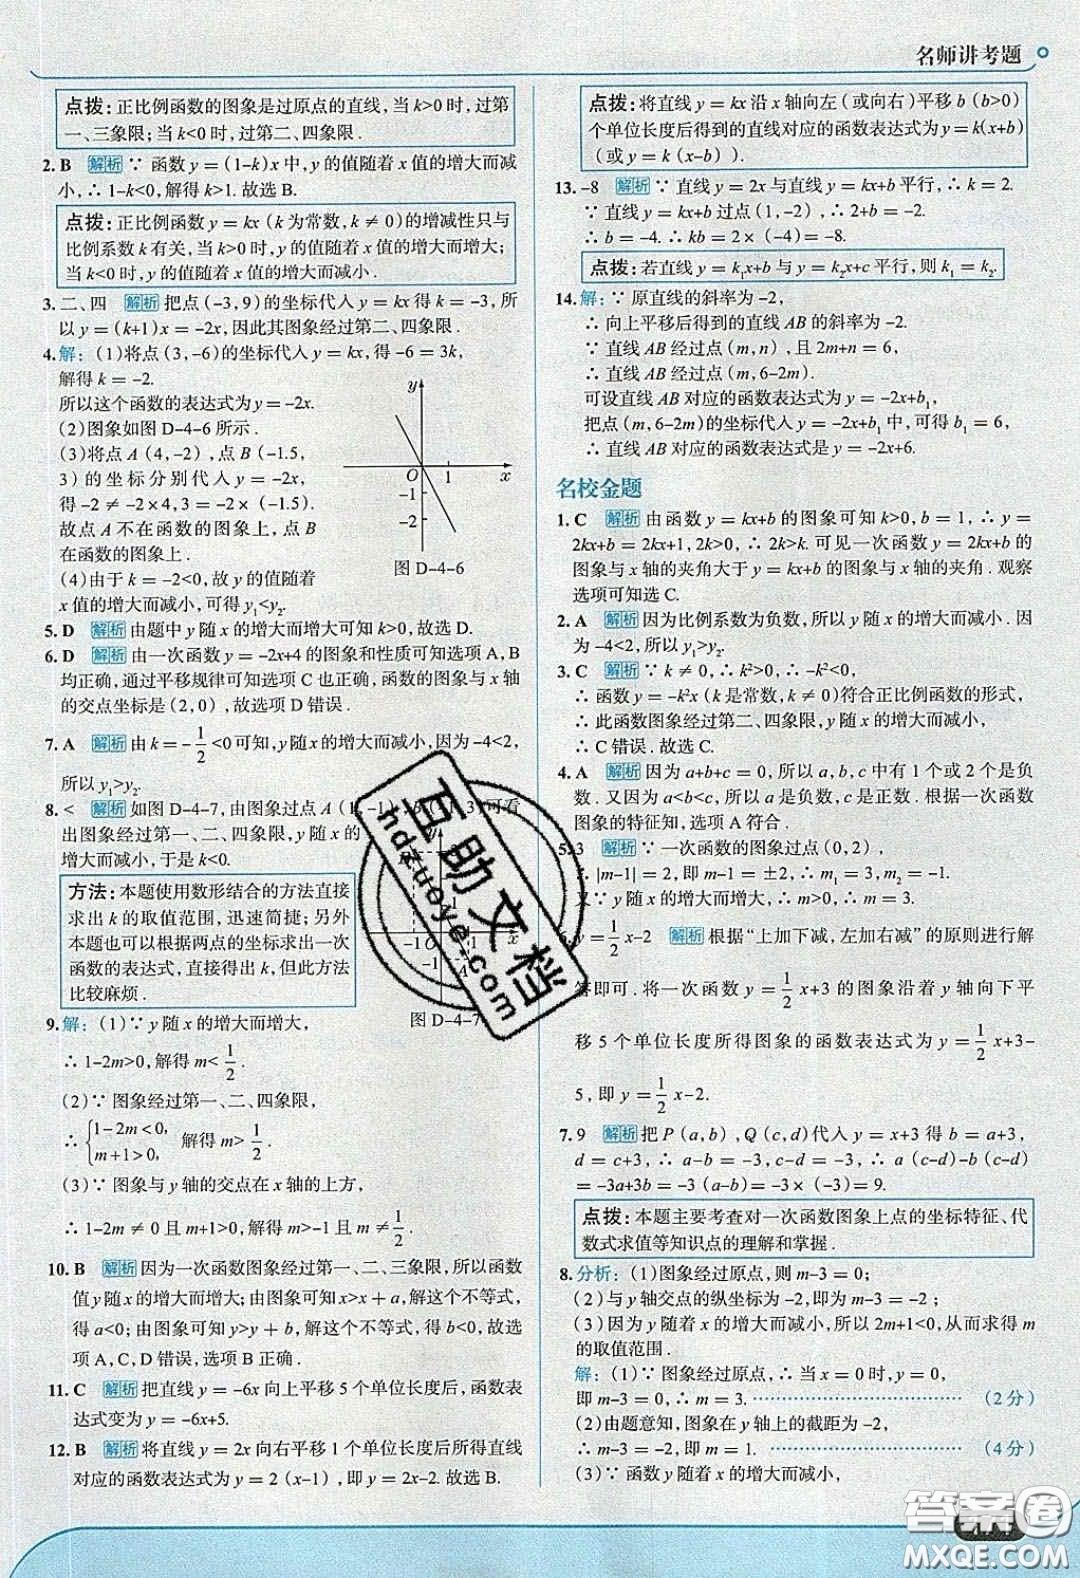 名师讲考题
点拨：正比例函数的图象是过原点的直线，当 k>0 时，过第
一、三象限；当 k<0 时，过第二、四象限．
2. B 解析 ∵ 函数 y =（1-k）x 中，y 的值随着 x 值的增大而减
小，∴ 1-k<0，解得 k>1. 故选 B.
点拨：正比例函数 y = kx（k 为常数，k ≠ 0）的增减性只与
比例系数 k 有关，当 k>0 时，y 的值随着 x 值的增大而增大；
当 k<0 时，y 的值随着 x 值的增大而减小．
3. 二、四 解析 把点（-3，9）的坐标代入 y = kx 得 k = -3，所
以 y =（k+1）x = -2x，因此其图象经过第二、四象限．
4. 解：（1）将点（3，-6）的坐标代入 y = kx，得 -6 = 3k，
解得 k = -2.
所以这个函数的表达式为 y = -2x.
（2）图象如图 D-4-6 所示．
（3）将点 A（4，-2），点 B（-1.5，
3）的坐标分别代入 y = -2x，
得 -2 ≠ -2 × 4，3 = -2 ×（-1.5）.
故点 A 不在函数的图象上，点 B
在函数的图象上．
（4）由于 k = -2<0，故 y 的值随着
x 值的增大而减小，可得 y₁<y₂.
y
O 1 x
-1
-2
图 D-4-6
5. D 解析 由题中 y 随 x 的增大而增大可知 k>0，故选 D.
6. D 解析 由一次函数 y = -2x+4 的图象和性质可知选项 A、B
均正确，通过平移规律可知选项 C 也正确，函数的图象与 x 轴
的交点坐标是（2，0），故选项 D 错误．
7. A 解析 由 k = -1/2 <0 可知，y 随 x 的增大而减小，因为 -4<2，
所以 y₁>y₂.
8. < 解析 如图 D-4-7，由图象过点 A（1，-1），B（-1，3）可看
出图象经过第一、二、四象限，y 随 x 的
增大而减小，于是 k<0.
方法：本题使用数形结合的方法直接
求出 k 的取值范围，迅速简捷；另外
本题也可以根据两点的坐标求出一次
函数的表达式，直接得出 k，但此方法
比较麻烦．
-1 O 1 x
-1 A
图 D-4-7
9. 解：（1）∵ y 随 x 的增大而增大，
∴ 1-2m>0，解得 m< 1/2 .
（2）∵ 图象经过第一、二、四象限，
∴ {1-2m<0，m+1>0， 解得 m> 1/2 .
（3）∵ 图象与 y 轴的交点在 x 轴的上方，
∴ 1-2m ≠ 0 且 m+1>0，解得 m>-1 且 m ≠ 1/2 .
10. B 解析 因为一次函数图象经过第一、二、三象限，所以函数
值 y 随 x 的增大而增大；由图象可知 x>x + a，解这个不等式，
得 a<0；由图象可知 y>y + b，解这个不等式，得 b<0，故选
项 A，C，D 错误，选项 B 正确．
11. C 解析 把直线 y = -6x 向上平移 5 个单位长度后，函数表
达式变为 y = -6x+5.
12. B 解析 将直线 y = 2x 向右平移 1 个单位长度后所得直线
对应的函数表达式为 y = 2（x-1），即 y = 2x-2. 故选 B.
点拨：将直线 y = kx 沿 x 轴向左（或向右）平移 b（b>0）
个单位长度后得到的直线对应的函数表达式为 y = k(x+b)
（或 y = k（x-b））.
13. -8 解析 ∵ 直线 y = 2x 与直线 y = kx+b 平行，∴ k = 2.
∵ 直线 y = kx+b 过点（1，-2），∴ 2+b = -2.
∴ b = -4. ∴ kb = 2 ×（-4）= -8.
点拨：若直线 y = k₁x+b 与 y = k₂x+c 平行，则 k₁ = k₂.
14. 解：∵ 原直线的斜率为 -2，
∴ 向上平移后得到的直线 AB 的斜率为 -2.
∵ 直线 AB 经过点（m，n），且 2m+n = 6，
∴ 直线 AB 经过点（m，6-2m）.
可设直线 AB 对应的函数表达式为 y = -2x+b₁，
把点（m，6-2m）的坐标代入 y = -2x+b₁ 中，可得 b₁ = 6，
∴ 直线 AB 对应的函数表达式是 y = -2x+6.
名校金题
1. C 解析 由函数 y = kx+b 的图象可知 k>0，b = 1，∴ y =
2kx+b = 2kx+1，2k>0，∴ 2k>k. 可见一次函数 y = 2kx+b 的
图象与 x 轴的夹角大于 y = kx+b 的图象与 x 轴的夹角．观察
选项可知选 C.
2. A 解析 因为比例系数为负数，所以 y 随 x 的增大而减小．因
为 -4<2，所以 y₁>y₂.
3. C 解析 ∵ k ≠ 0，∴ k²>0，∴ -k²<0，
∴ 函数 y = -k²x（k 是常数，k ≠ 0）符合正比例函数的形式，
∴ 此函数图象经过第二、四象限，y 随 x 的增大而减小，
∴ C 错误．故选 C.
4. A 解析 因为 a+b+c = 0，所以 a，b，c 中有 1 个或 2 个是负
数．又因为 a<b<c，所以 a 是负数，c 是正数．根据一次函数
图象的特征知，选项 A 符合．
5. 3 解析 ∵ 一次函数的图象过点（0，2），
∴ |m-1| = 2，即 m-1 = ±2，∴ m₁ = 3，m₂ = -1.
又∵ y 随 x 的增大而增大，∴ m>0，∴ m = 3.
6. y = 1/2 x-2 解析 根据“上加下减，左加右减”的原则进行解
答即可．将一次函数 y = 1/2 x+3 的图象沿着 y 轴向下平
移 5 个单位长度所得图象的函数表达式为 y = 1/2 x+3-
5，即 y = 1/2 x-2.
7. 9 解析 把 P（a，b），Q（c，d）代入 y = x+3 得 b = a+3，
d = c+3，∴ a-b = -3，c-d = -3，∴ a（c-d)-b（c-d）
= -3a+3b = -3（a-b）= -3 ×（-3）= 9.
点拨：本题主要考查对一次函数图象上点的坐标特征、代
数式求值等知识点的理解和掌握．
8. 分析：（1）图象经过原点，则 m-3 = 0；
（2）与 y 轴交点的纵坐标为 -2，即为 m-3 = -2；
（3）因为 y 随着 x 的增大而减小，所以 2m+1<0，从而求得 m
的取值范围．
解：（1）∵ 图象经过原点，∴ 当 x = 0 时，y = 0，
即 m-3 = 0，∴ m = 3. ……（2 分）
（2）由题意知，图象在 y 轴上的截距为 -2，
∴ m-3 = -2，即 m = 1. ……（4 分）
（3）∵ 函数 y 随着 x 的增大而减小，
互助文档
hdzuoye.com
答案圈
MXQE.COM